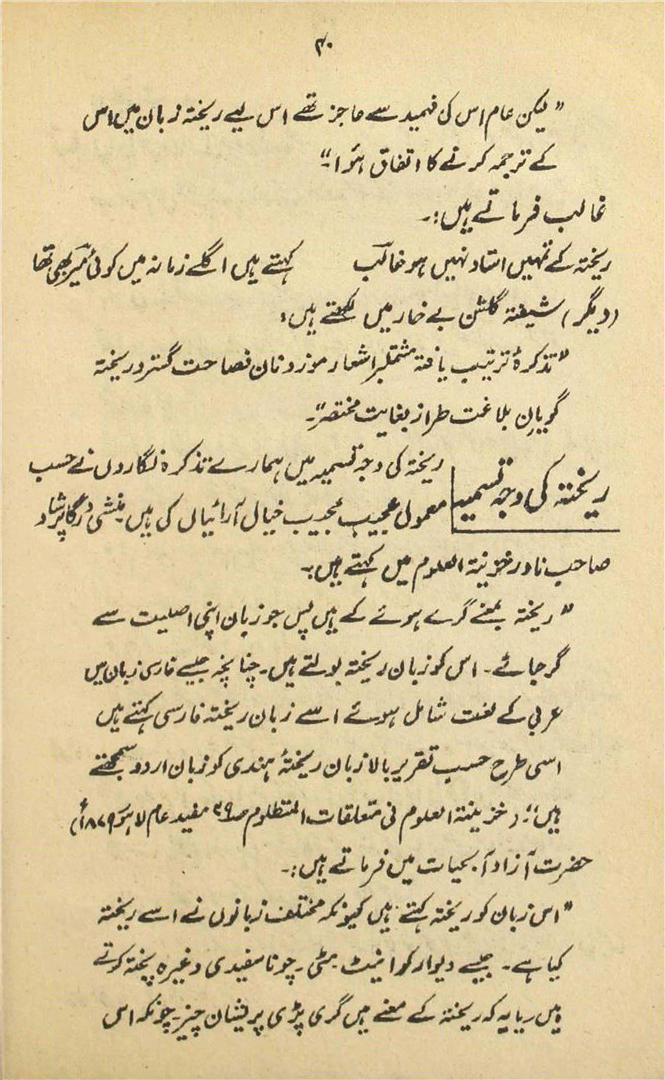 ۴۰
”لیکن عام اس کی فہمید سے عاجز تھے اس لیے ریختہ زبان میں اس
کے ترجمہ کرنے کا اتفاق ہوا۔“
غالب فرماتے ہیں:۔
ریختہ کے تمہیں استاد نہیں ہو غالب کہتے ہیں اگلے زمانہ میں کوئی میر بھی تھا
(دیگر) شیفتہ گلشن بے خار میں لکھتے ہیں:
”تذکرۂ ترتیب یافتہ مشتملبر اشعار موزونان فصاحت گستر و ریختہ
گویان بلاغت طراز بغایت مختصر“۔
ریختہ کی وجہ تسمیہ
ریختہ کی وجہ تسمیہ میں ہمارے تذکرہ نگاروں نے حسب
معمول عجیب عجیب خیال آرائیاں کی ہیں۔ منشی درگا پرشاد
صاحب نادر خزینۃ العلوم میں کہتے ہیں:۔
”ریختہ بمعنے گرے ہوئے کے ہیں پس جو زبان اپنی اصلیت سے
گر جائے۔ اس کو زبان ریختہ بولتے ہیں۔ چنانچہ جیسے فارسی زبان میں
عربی کے لغت شامل ہوئے اسے زبان ریختہ فارسی کہتے ہیں
اسی طرح حسب تقریر بالا زبان ریختۂ ہندی کو زبان اردو سمجھتے
ہیں“: (خزینۃ العلوم فی متعلقات المنظلوم ص۳۹ مفید عام لاہور ۱۸۷۹ء)
حضرت آزاد آبحیات میں فرماتے ہیں:۔
”اس زبان کو ریختہ کہتے ہیں کیونکہ مختلف زبانوں نے اسے ریختہ
کیا ہے۔ جیسے دیوار کو اینٹ۔ مٹی۔ چونا سفیدی وغیرہ پختہ کرتے
ہیں یا یہ کہ ریختہ کے معنے ہیں گری پڑی پریشان چیز۔ چونکہ اس